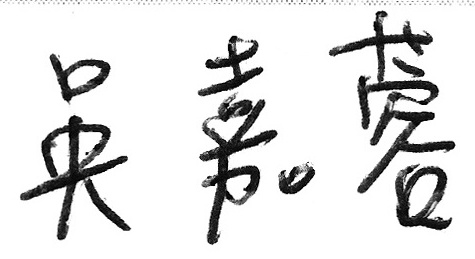 吴嘉蓉